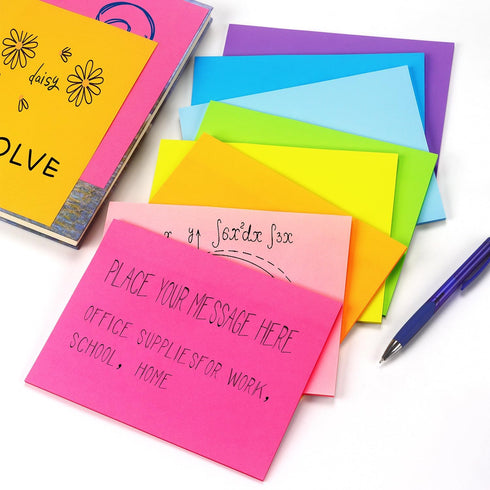 daisy
OLVE
x y ∫6x²dx ∫3x
PLACE YOUR MESSAGE HERE
OFFICE SUPPLIESFOR WORK,
SCHOOL, HOME